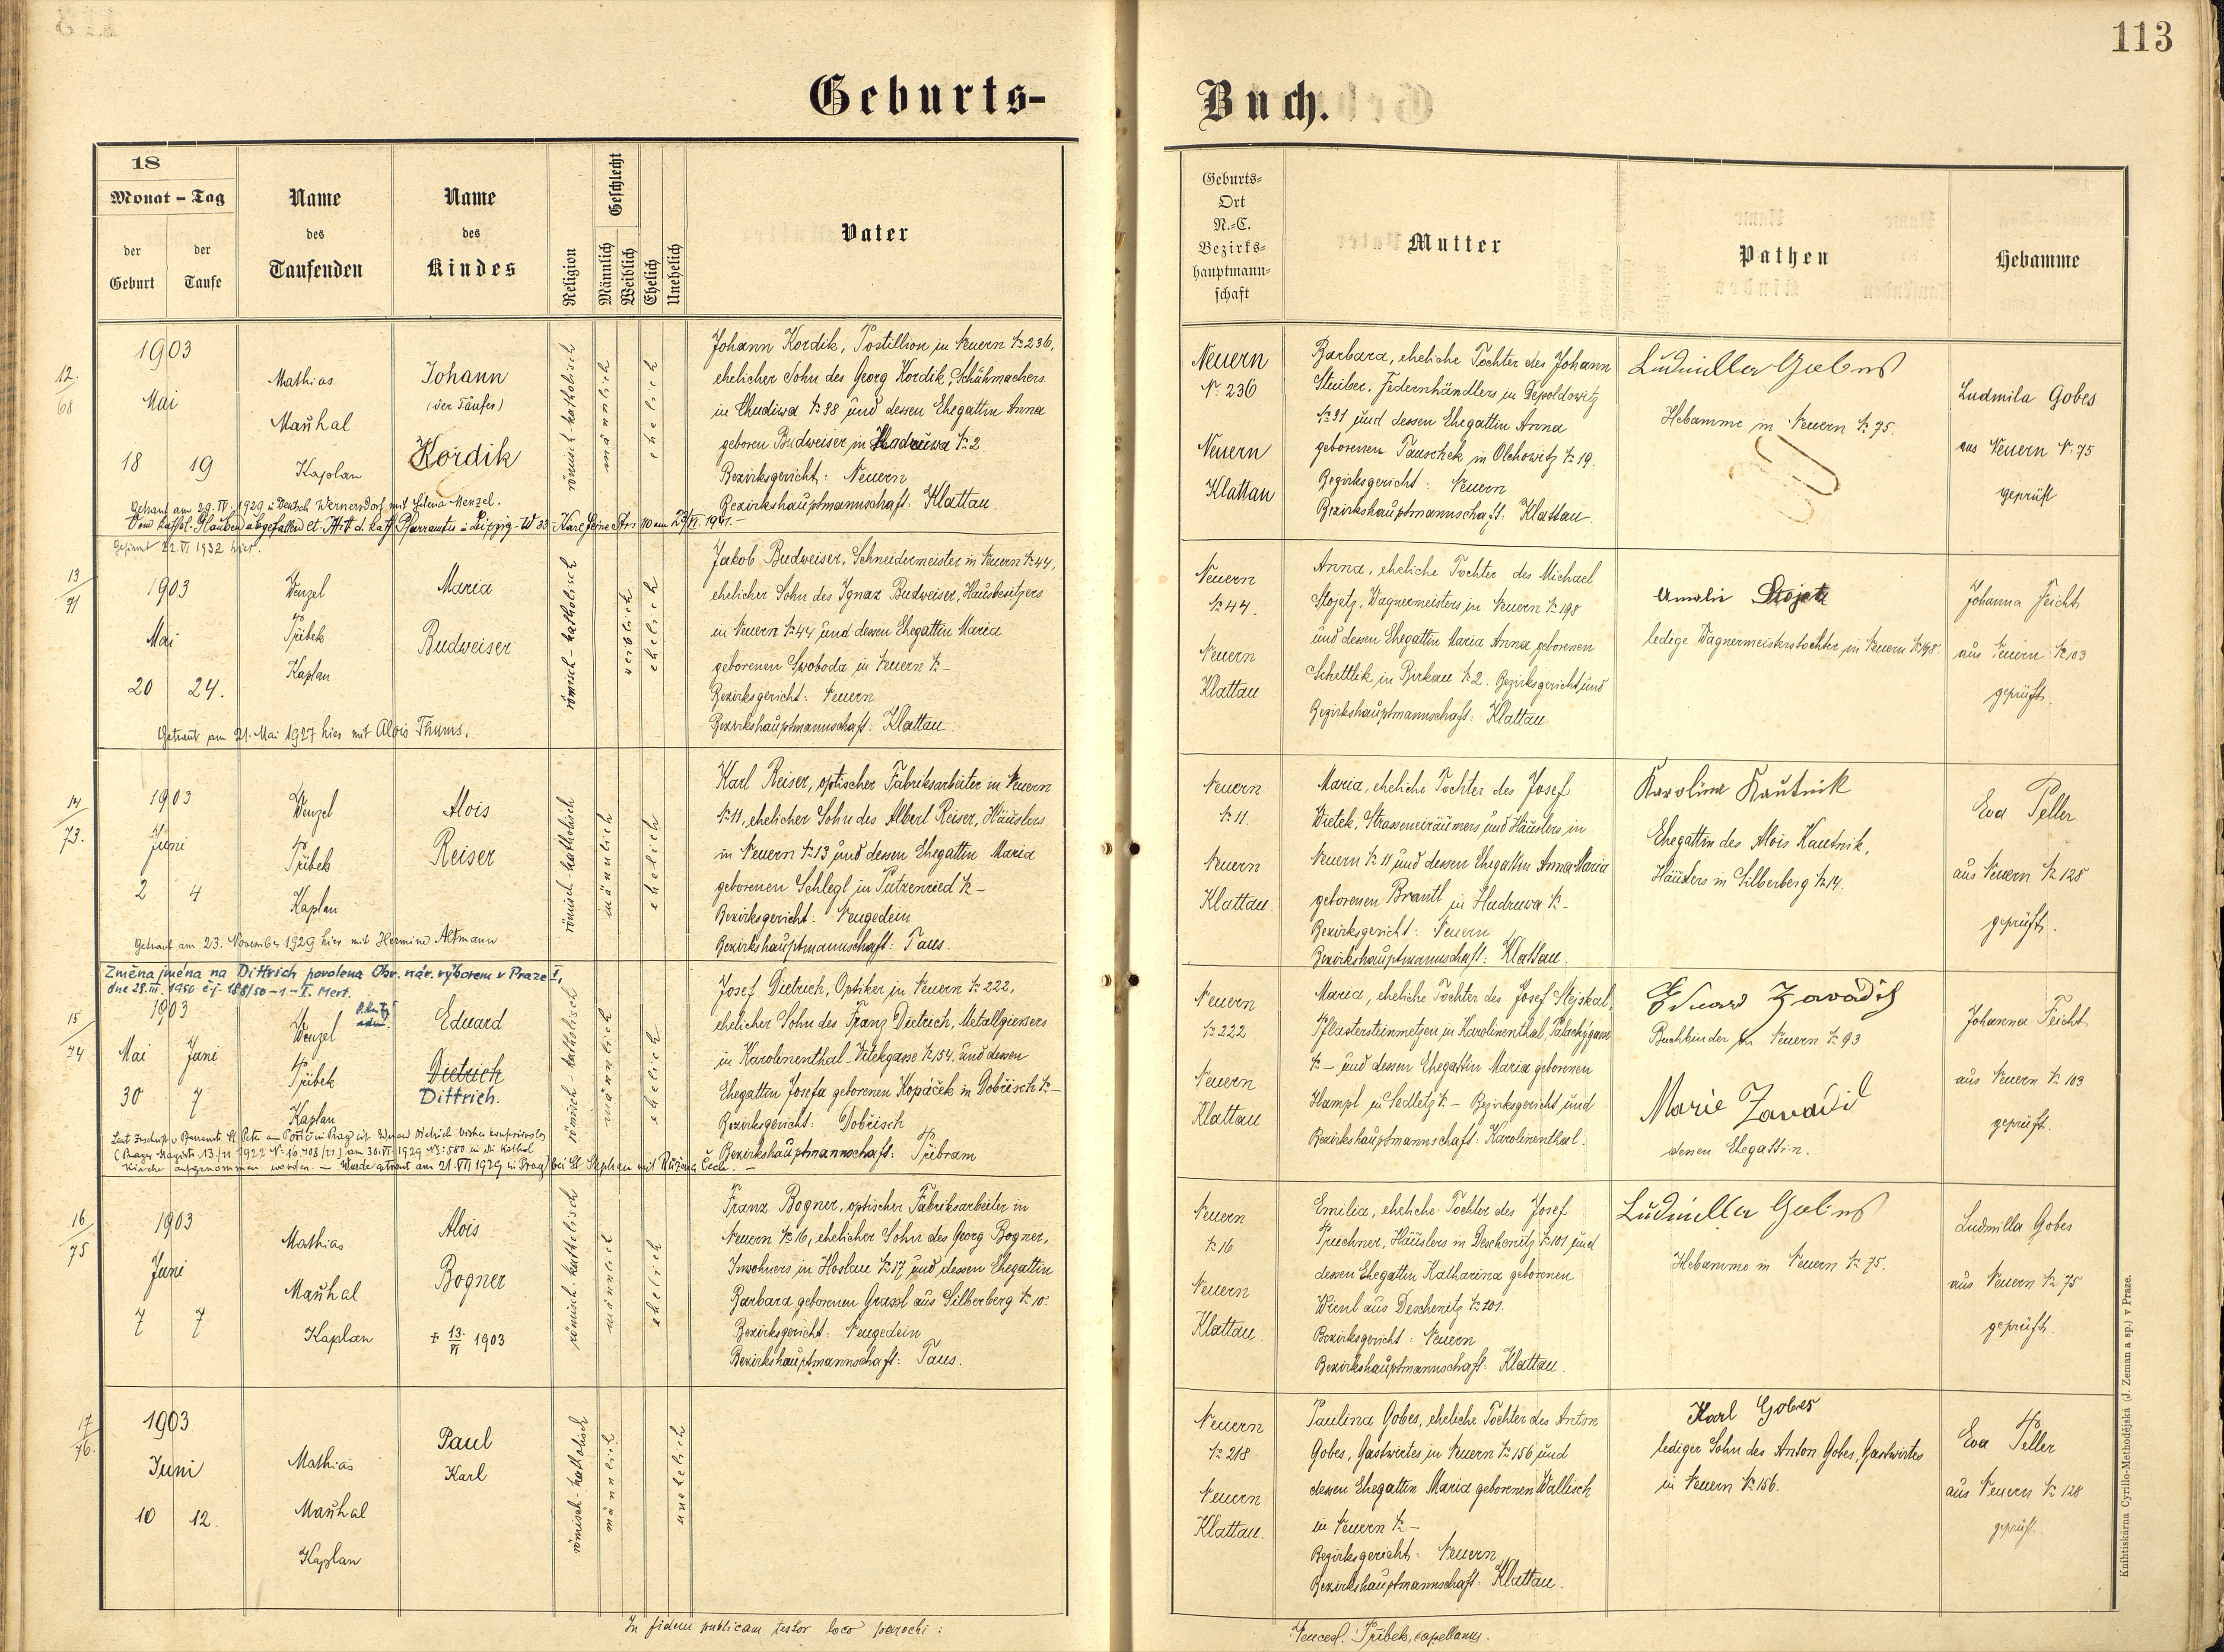 113
Geburts-
Buch.
18
Monat - Tag
der Geburt
der Taufe
Name des Taufenden
Name des Kindes
Religion
Geschlecht
Männlich
Weiblich
Ehelich
Unehelich
Vater
Geburts-
Ort
N.-C.
Bezirks-
hauptmann-
schaft
Mutter
Pathen
Hebamme
12.
68
1903
Mai
18 19
Mathias
Maühal
Kaplan
Johann
(der Täufer)
Kordik
römisch-katholisch
männlich
ehelich
Johann Kordik, Postillion in Neuern № 236,
ehelicher Sohn des Georg Kordik, Schuhmachers
in Chudiwa № 38 und dessen Ehegattin Anna
geboren Budweiser in Hadruwa № 2.
Bezirksgericht: Neuern
Bezirkshauptmannschaft: Klattau.
Getraut am 29. IV. 1929 in Deutsch Wernersdorf mit Helena Menzel.
Vom kathol. Glauben abgefallen lt. Mitt. d. kath. Pfarramtes in Leipzig - W 33 Karl Heine Str. 110 am 23/VI. 1941.-
Neuern
N. 236
Neuern
Klattau
Barbara, eheliche Tochter des Johann
Stuiber, Federnhändlers in Depoldowitz
№ 31 und dessen Ehegattin Anna
geborenen Tauschek in Olchowitz № 19.
Bezirksgericht: Neuern
Bezirkshauptmannschaft: Klattau.
Ludmilla Gobes
Hebamme in Neuern № 75.
Ludmila Gobes
aus Neuern N. 75
geprüft
Gefirmt 22. VI 1932 hier.
13
71
1903
Mai
20 24.
Wenzel
Přibek
Kaplan
Maria
Budweiser
römisch-katholisch
weiblich
ehelich
Jakob Budweiser, Schneidermeister in Neuern № 44,
ehelicher Sohn des Ignaz Budweiser, Hausbesitzers
in Neuern № 44 und dessen Ehegattin Maria
geborenen Swoboda in Neuern № -
Bezirksgericht: Neuern
Bezirkshauptmannschaft: Klattau.
Getraut am 21. Mai 1927 hier mit Alois Thums.
Neuern
№ 44.
Neuern
Klattau
Anna, eheliche Tochter des Michael
Stojetz, Wagnermeisters in Neuern № 198
und dessen Ehegattin Maria Anna geborenen
Schettlek in Birkau № 2. Bezirksgericht und
Bezirkshauptmannschaft: Klattau
Amalie Stojetz
ledige Wagnermeisterstochter in Neuern № 198.
Johanna Feicht
aus Neuern № 103
geprüft.
14
73.
1903
Juni
2 4
Wenzel
Přibek
Kaplan
Alois
Reiser
römisch-katholisch
männlich
ehelich
Karl Reiser, optischer Fabriksarbeiter in Neuern
№ 11, ehelicher Sohn des Albert Reiser, Häuslers
in Neuern № 13 und dessen Ehegattin Maria
geborenen Schlegl in Putzenried № -
Bezirksgericht: Neugedein
Bezirkshauptmannschaft: Taus.
Getraut am 23. November 1929 hier mit Hermine Altmann
Neuern
№ 11.
Neuern
Klattau.
Maria, eheliche Tochter des Josef
Wietek, Strasseneinräumers und Häuslers in
Neuern № 11 und dessen Ehegattin Anna Maria
geborenen Brantl in Hudruwa № -
Bezirksgericht: Neuern
Bezirkshauptmannschaft: Klattau.
Karolina Kautnik
Ehegattin des Alois Kautnik,
Häuslers in Silberberg № 14.
Eva Peller
aus Neuern № 128
geprüft.
Změna jména na Dittrich povolena Obv. nár. výborem v Praze I,
dne 28. III. 1950 č.j. 188/50-1-I. Mert.
15
74
1903
Mai Juni
30 7
Wenzel
Přibek
Kaplan
Eduard
Dietrich
Dittrich.
römisch katholisch
männlich
ehelich
Josef Dietrich, Optiker in Neuern № 222,
ehelicher Sohn des Franz Dietrich, Metallgiessers
in Karolinenthal-Vitekgasse № 154. und dessen
Ehegattin Josefa geborenen Kopáček in Dobřisch № -
Bezirksgericht: Dobřisch
Bezirkshauptmannschaft: Přibram
Laut Zuschrift v. Pfarramte St. Peter am Poříč in Prag ist Eduard Dietrich bisher konfessionslos
(Prager Magistr. 13/11 1922 N: 16.403/21) am 30. VI 1929 N: 580 in die Kathol
Kirche aufgenommen worden. - Wurde getraut am 21. VII 1929 in Prag bei St. Stephan mit Růžena Čech. -
Neuern
№ 222
Neuern
Klattau
Maria, eheliche Tochter des Josef Stejskal,
Pflastersteinmetzen in Karolinenthal, Palackýgasse
№ - und dessen Ehegattin Maria geborenen
Hampl in Sedletz № - Bezirksgericht und
Bezirkshauptmannschaft: Karolinenthal.
Eduard Zavadil
Buchbinder in Neuern № 93
Marie Zavadil
dessen Ehegattin.
Johanna Feicht
aus Neuern № 103
geprüft.
16
75
1903
Juni
7 7
Mathias
Maühal
Kaplan
Alois
Bogner
+ 13./VI 1903
römisch-katholisch
männlich
ehelich
Franz Bogner, optischer Fabriksarbeiter in
Neuern № 16, ehelicher Sohn des Georg Bogner,
Inwohners in Hoslau № 17 und dessen Ehegattin
Barbara geborenen Grassl aus Silberberg № 10.
Bezirksgericht: Neugedein
Bezirkshauptmannschaft: Taus.
Neuern
№ 16
Neuern
Klattau.
Emilia, eheliche Tochter des Josef
Pruchner, Häuslers in Deschenitz № 101 und
dessen Ehegattin Katharina geborenen
Wienl aus Deschenitz № 101.
Bezirksgericht: Neuern
Bezirkshauptmannschaft: Klattau.
Ludmilla Gobes
Hebamme in Neuern № 75.
Ludmilla Gobes
aus Neuern № 75
geprüft.
17
76.
1903
Juni
10 12.
Mathias
Maühal
Kaplan
Paul
Karl
römisch-katholisch
männlich
unehelich
Neuern
№ 218
Neuern
Klattau.
Paulina Gobes, eheliche Tochter des Anton
Gobes, Gastwirtes in Neuern № 156 und
dessen Ehegattin Maria geborenen Wallisch
in Neuern № -
Bezirksgericht: Neuern
Bezirkshauptmannschaft: Klattau.
Karl Gobes
lediger Sohn des Anton Gobes, Gastwirtes
in Neuern № 156.
Eva Peller
aus Neuern № 128
geprüft.
In fidem publicam testor loco parochi:
Wencesl. Přibek, capellanus.
Knihtiskárna Cyrillo-Methodějská (J. Zeman a sp.) v Praze.